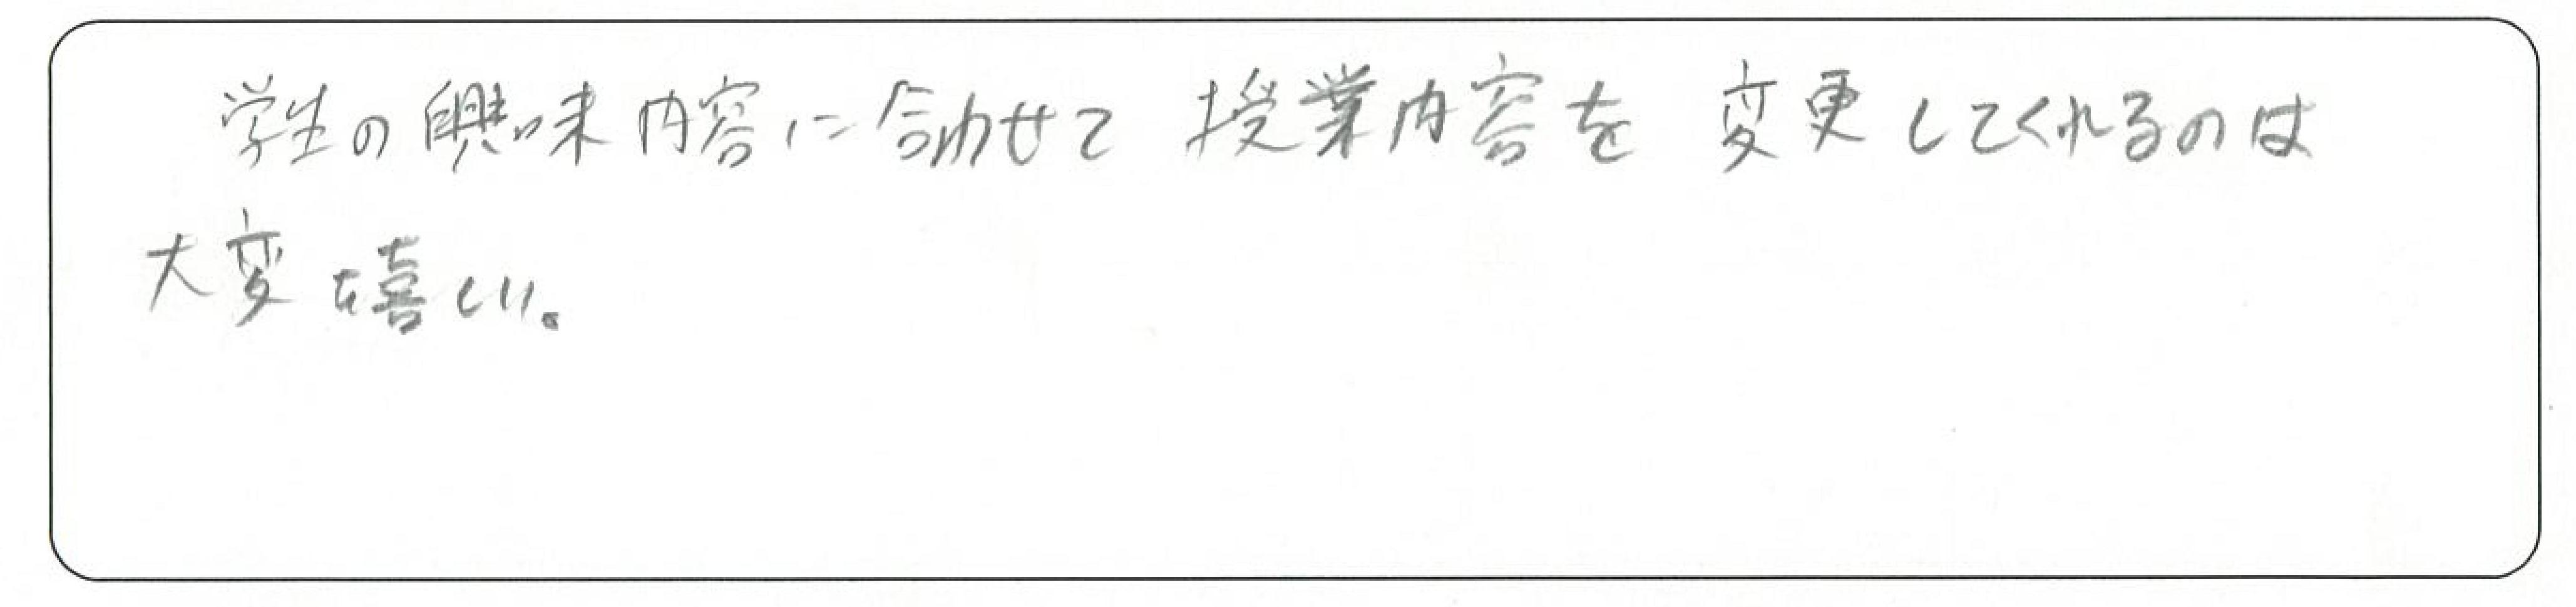 学生の興味内容に合わせて授業内容を変更してくれるのは
大変嬉しい。